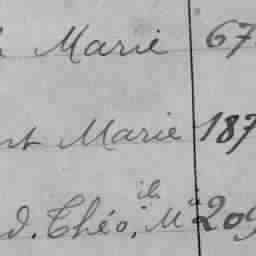 Marie 67
Marie 187
d. Théo. M 209